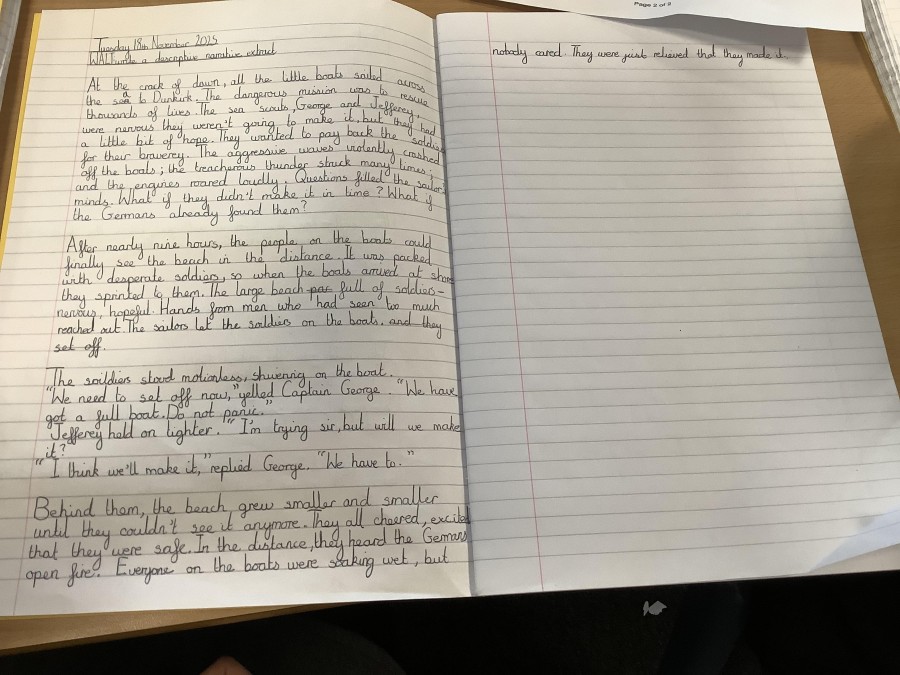 Page 2 of 2
Tuesday 18th November 2025
WALT write a descriptive narrative extract
At the crack of dawn, all the little boats sailed across
the sea to Dunkirk. The dangerous mission was to rescue
thousands of lives. The sea scouts, George and Jefferey,
were nervous they weren't going to make it, but they had
a little bit of hope. They wanted to pay back the soldiers
for their bravery. The aggressive waves violently crashed
off the boats; the treacherous thunder struck many times;
and the engines roared loudly. Questions filled the sailor's
minds. What if they didn't make it in time? What if
the Germans already found them?
After nearly nine hours, the people on the boats could
finally see the beach in the distance. It was packed
with desperate soldiers, so when the boats arrived at shore
they sprinted to them. The large beach full of soldiers-
nervous, hopeful. Hands from men who had seen too much
reached out. The sailors let the soldiers on the boats, and they
set off.
The soildiers stood motionless, shivering on the boat.
"We need to set off now," yelled Captain George. "We have
got a full boat. Do not panic."
Jefferey held on tighter. "I'm trying sir, but will we make
it?"
"I think we'll make it," replied George. "We have to."
Behind them, the beach grew smaller and smaller
until they couldn't see it anymore. They all cheered, excited
that they were safe. In the distance, they heard the Germans
open fire. Everyone on the boats were soaking wet, but
nobody cared. They were just relieved that they made it.